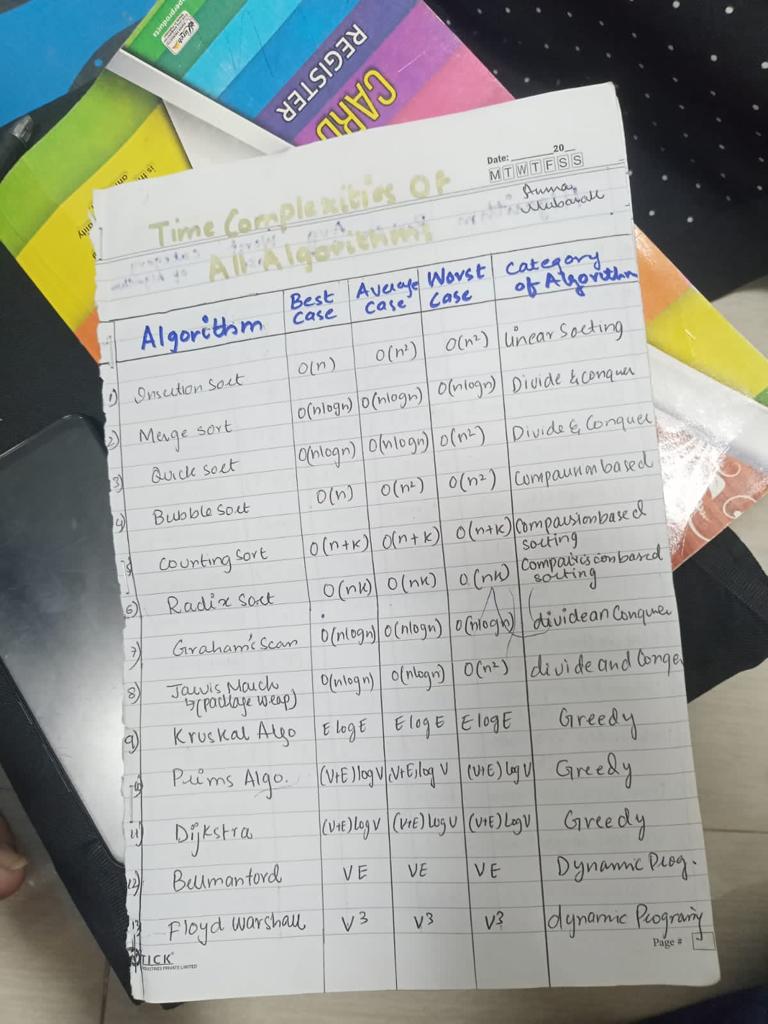 REGISTER
CARD
Date: 20
M T W T F S S
Time Complexities Of
All Algorithms
Algorithm Best Case Average Case Worst Case Category of Algorithm
1) Insertion sort O(n) O(n²) O(n²) linear Sorting
2) Merge sort O(nlogn) O(nlogn) O(nlogn) Divide & conquer
3) Quick sort O(nlogn) O(nlogn) O(n²) Divide & Conquer
4) Bubble sort O(n) O(n²) O(n²) Comparison based
5) Counting sort O(n+k) O(n+k) O(n+k) Comparsion based sorting
6) Radix sort O(nk) O(nk) O(nk) Comparision based sorting
7) Graham's Scan O(nlogn) O(nlogn) O(nlogn) divide an Conquer
8) Jarvis March O(nlogn) O(nlogn) O(n²) divide and Conque
↳(package wrap)
9) Kruskal Algo E log E E log E E log E Greedy
10) Prims Algo. (V+E) log V (V+E) log V (V+E) log V Greedy
11) Dijkstra (V+E) log V (V+E) log V (V+E) log V Greedy
12) Bellmanford VE VE VE Dynamic Prog.
13) Floyd Warshall V³ V³ V³ dynamic Programing
Page #